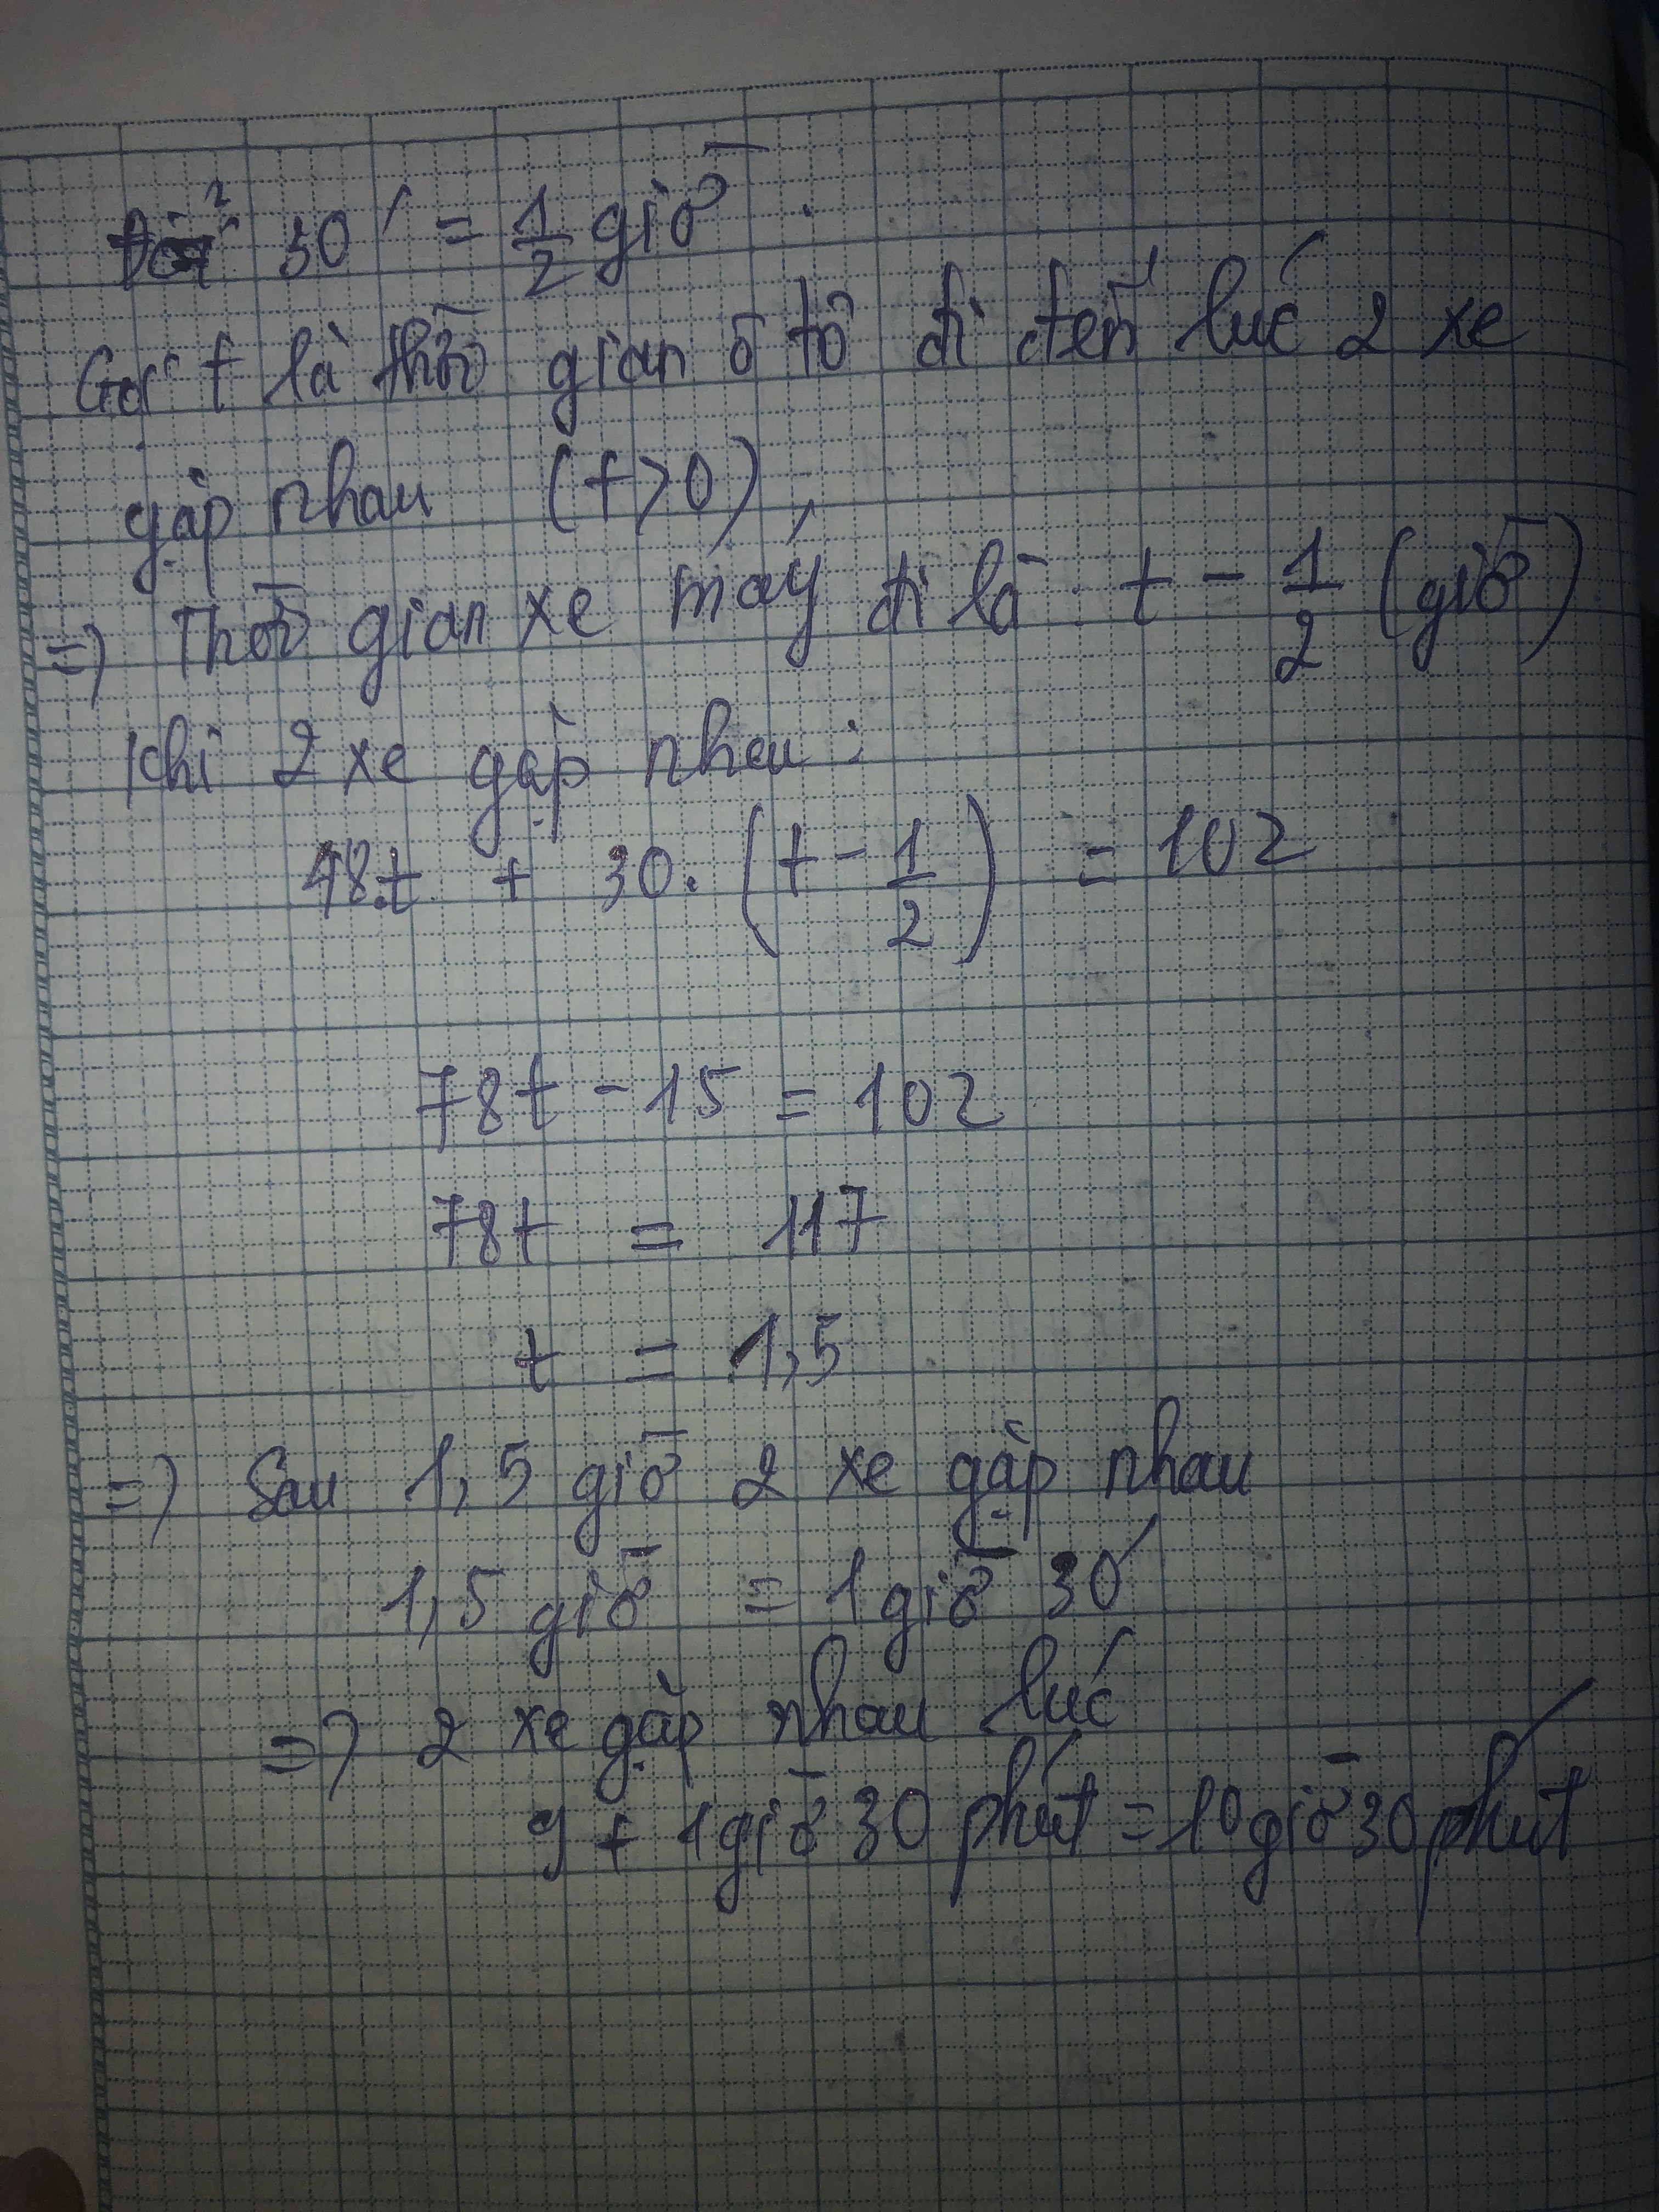 Đổi 30' = 1/2 giờ.
Gọi t là thời gian ô tô đi đến lúc 2 xe
gặp nhau (t>0),
=> Thời gian xe máy đi là: t - 1/2 (giờ)
Khi 2 xe gặp nhau:
48.t + 30.(t - 1/2) = 102
78t - 15 = 102
78t = 117
t = 1,5
=> Sau 1,5 giờ 2 xe gặp nhau
1,5 giờ = 1 giờ 30'
=> 2 xe gặp nhau lúc
9 + 1 giờ 30 phút = 10 giờ 30 phút